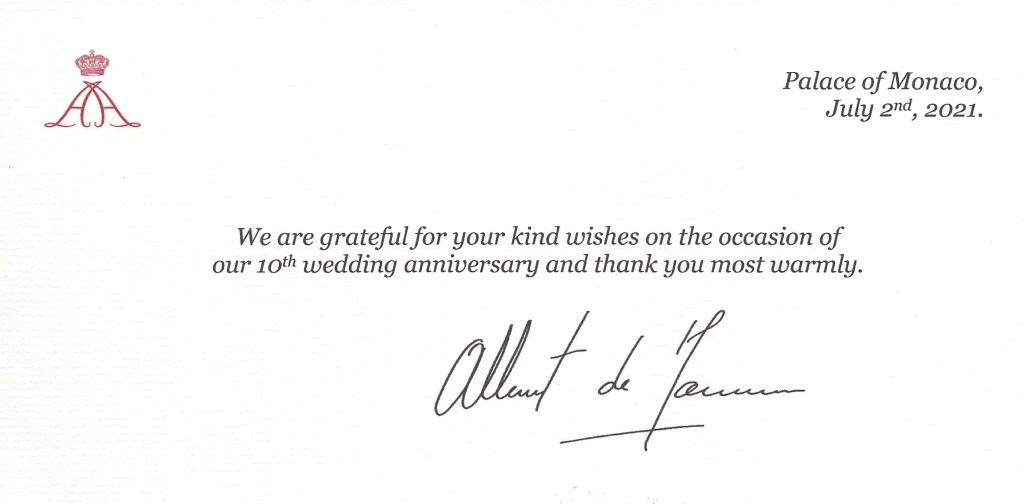 Palace of Monaco,
July 2nd, 2021.
We are grateful for your kind wishes on the occasion of
our 10th wedding anniversary and thank you most warmly.
Albert de Monaco